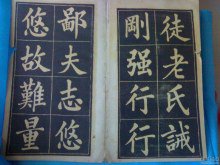 徒老氏誡
剛强行行
鄙夫志悠
悠故難量